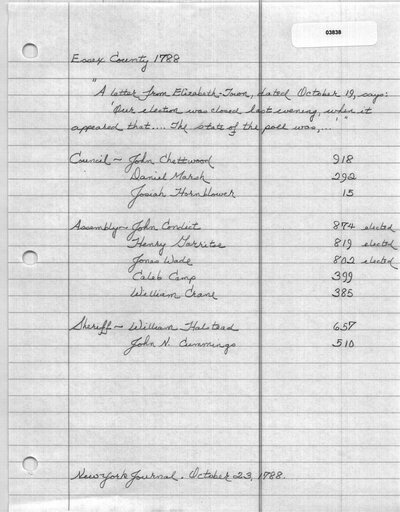 03838
Essex County 1788
"A letter from Elizabeth-Town, dated October 19, says:
'Our election was closed last evening, when it
appeared that.... The state of the poll was,...'"
Council~ John Chetwood 918
Daniel Marsh 292
Josiah Hornblower 15
Assembly~ John Condict 874 elected
Henry Garritse 819 elected
Jonas Wade 802 elected
Caleb Camp 399
William Crane 385
Sheriff~ William Halstead 657
John N. Cummings 510
New York Journal. October 23, 1788.